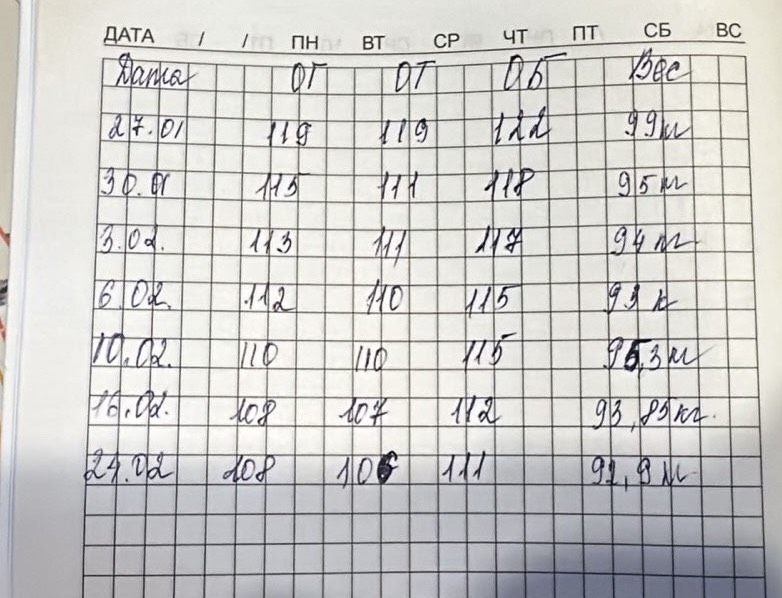 ДАТА / / ПН ВТ СР ЧТ ПТ СБ ВС
Дата ОГ ОТ ОБ Вес
27.01 119 119 122 99кг
30.01 115 111 118 95кг
3.02. 113 111 117 94кг
6.02. 112 110 115 93к
10.02. 110 110 115 95,3кг
16.02. 108 107 112 93,85кг.
24.02 108 106 111 92,9кг